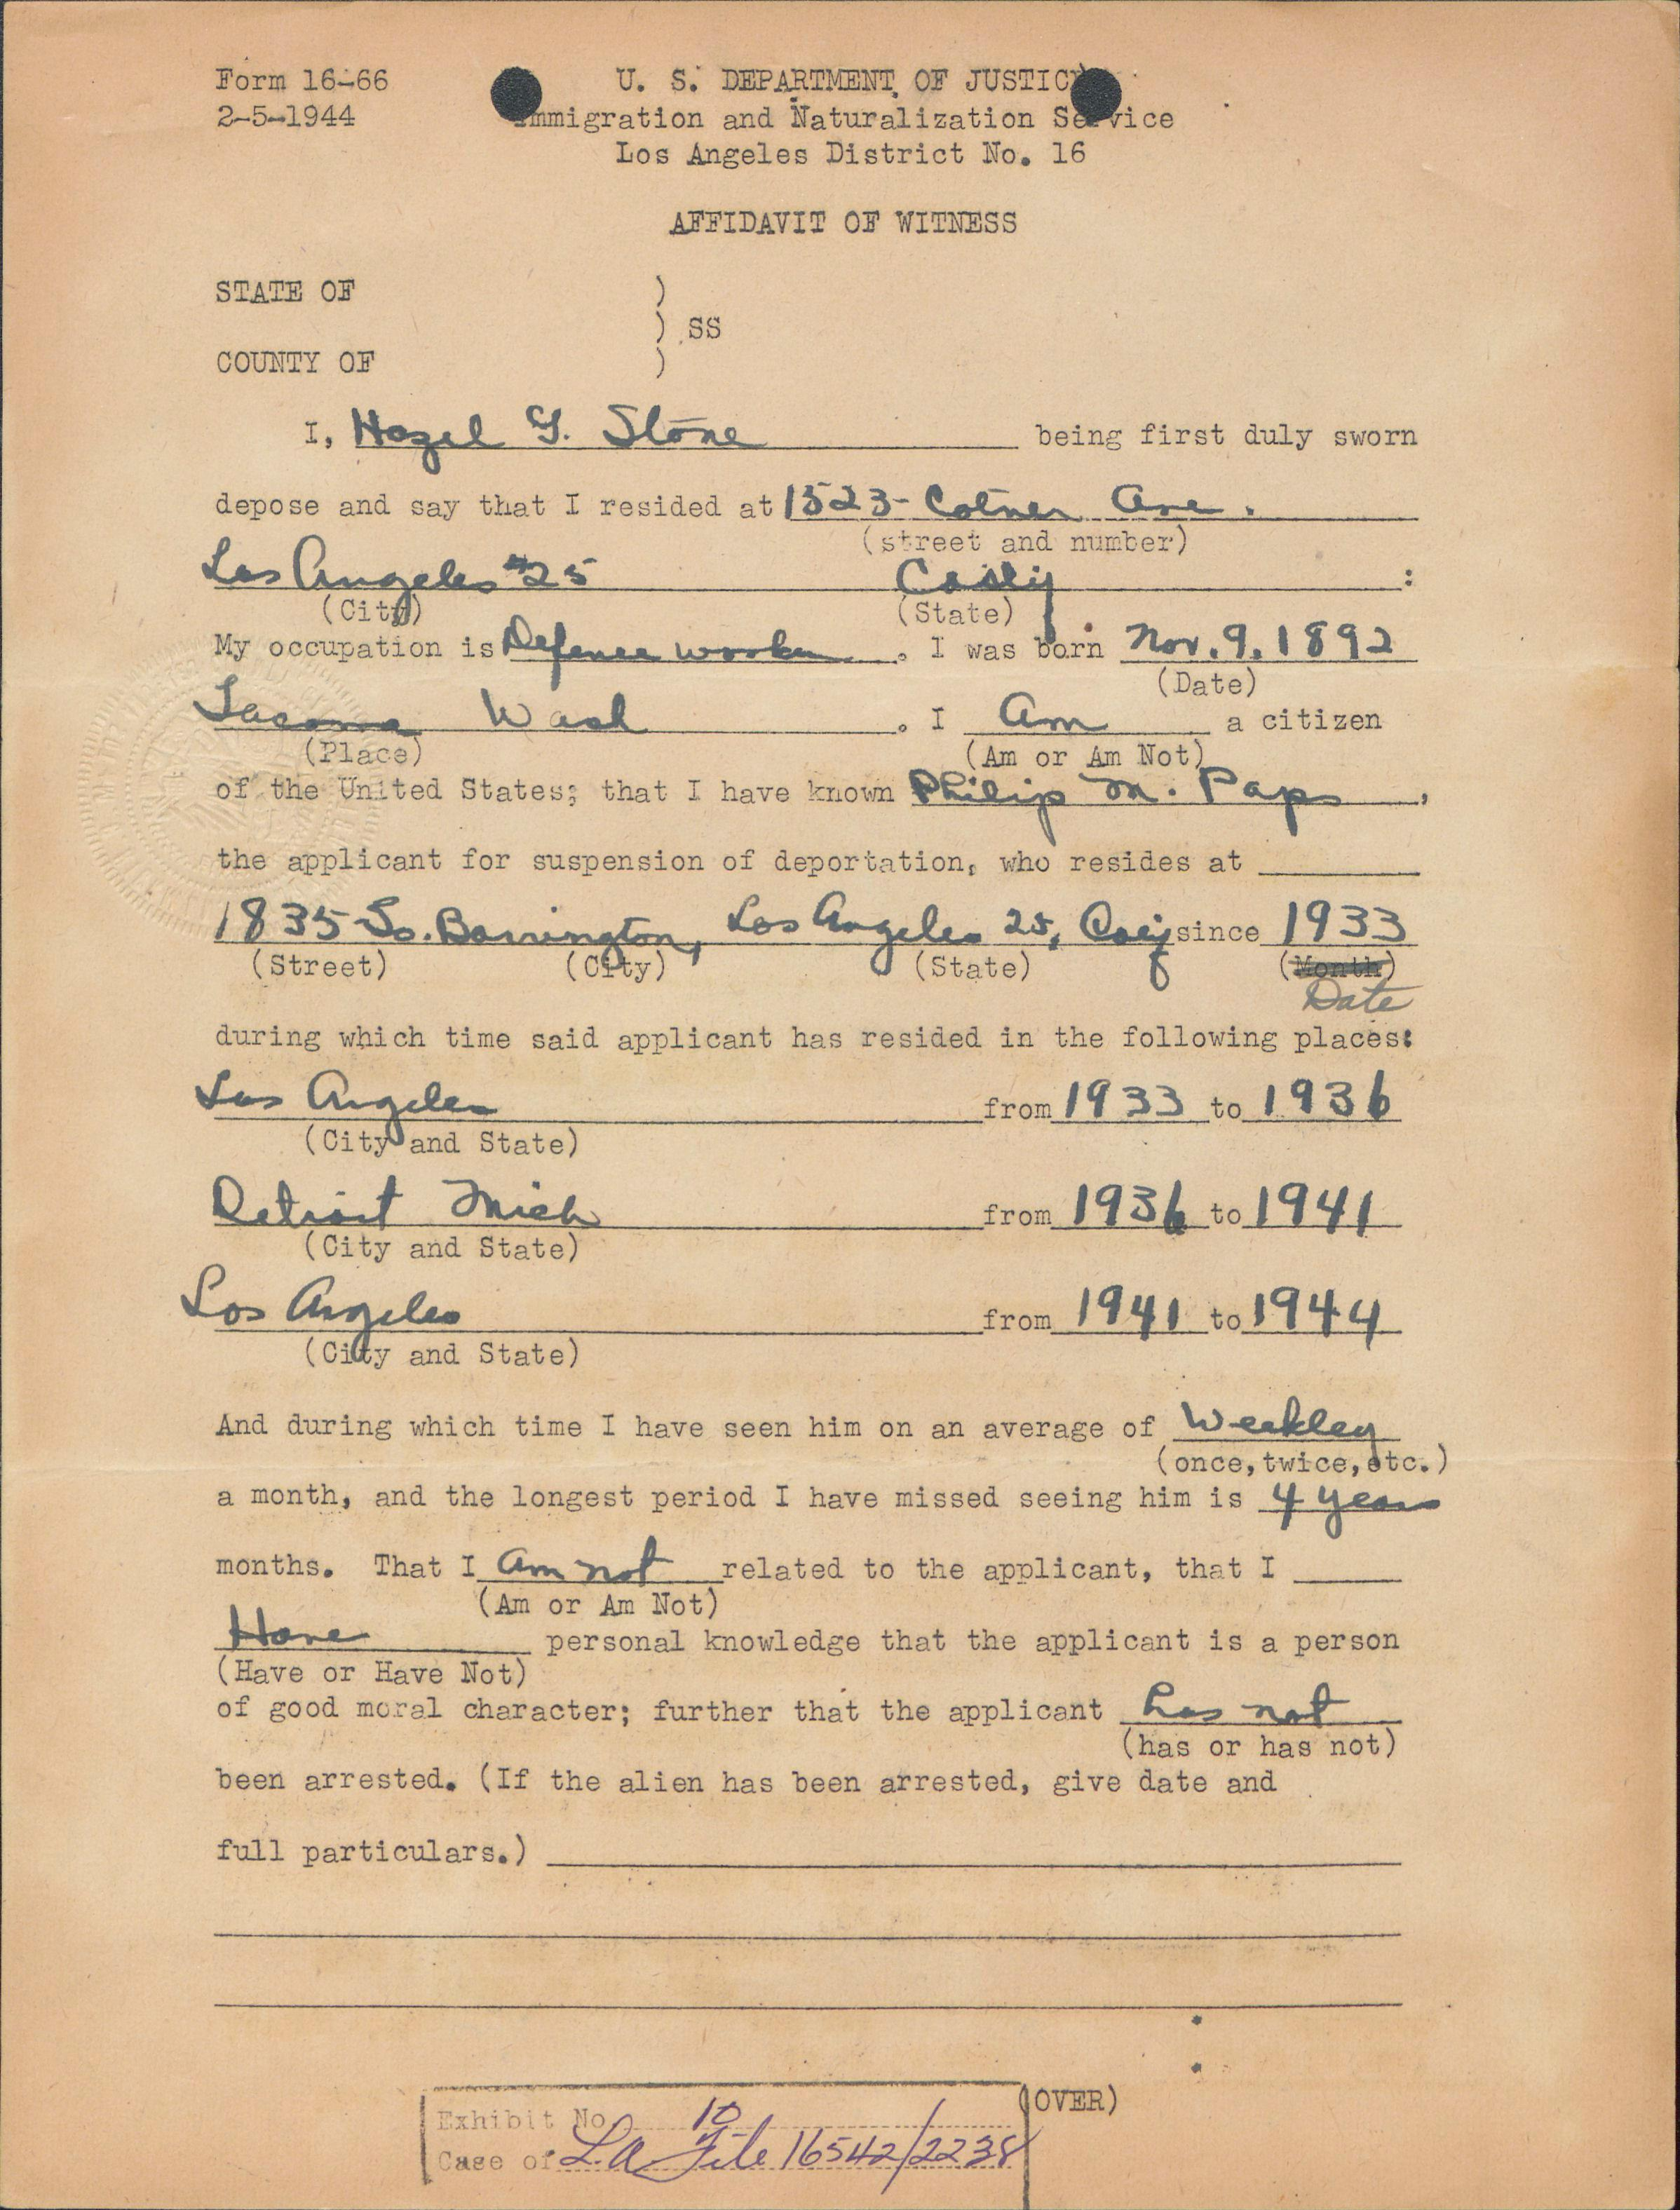 Form 16-66
2-5-1944
U. S. DEPARTMENT OF JUSTICE
Immigration and Naturalization Service
Los Angeles District No. 16
AFFIDAVIT OF WITNESS
STATE OF )
) SS
COUNTY OF )
I, Hazel G. Stone being first duly sworn
depose and say that I resided at 1523- Cotner Ave.
(street and number)
Los Angeles #25 Calif :
(City) (State)
My occupation is Defense worker . I was born Nov. 9. 1892
(Date)
Tacoma Wash . I Am a citizen
(Place) (Am or Am Not)
of the United States; that I have known Philip M. Paps ,
the applicant for suspension of deportation, who resides at
1835 So. Barrington, Los Angeles 25, Calif since 1933
(Street) (City) (State) (Month)
Date
during which time said applicant has resided in the following places:
Los Angeles from 1933 to 1936
(City and State)
Detroit Mich from 1936 to 1941
(City and State)
Los Angeles from 1941 to 1944
(City and State)
And during which time I have seen him on an average of Weekley
(once, twice, etc.)
a month, and the longest period I have missed seeing him is 4 years
months. That I am not related to the applicant, that I
(Am or Am Not)
Have personal knowledge that the applicant is a person
(Have or Have Not)
of good moral character; further that the applicant has not
(has or has not)
been arrested. (If the alien has been arrested, give date and
full particulars.)
(OVER)
Exhibit No. 10
Case of L.A. File 16542/2238